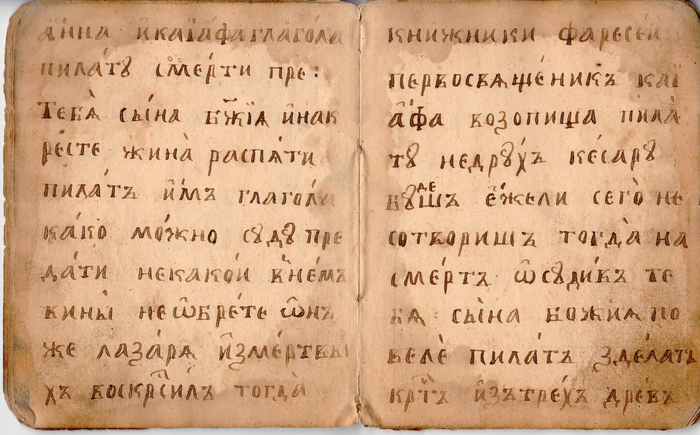 а҆нна и҆каїафаглагола
пила́тꙋ сме́рти пре:
Тебѧ̀ сы́на бж҃їѧ и҆нак
ре́сте жина̀ распѧ́ти
пила́тъ и҆́мъ глагола
ка́кѡ мо́жно сꙋдꙋ̀ пре
да́ти некакоѝ в̾не́мъ
вины̀ неѡ҆бре́те ѡ҆нъ
же ла́зарѧ и҆́змертвы
хъ воскрⷭ҇илъ тогда̀
книжники фаресеи
первосвѧще́никъ каї
а҆́фа возопиша пила
тꙋ̀ недрꙋ́хъ ке́сарꙋ̀
бꙋⷣешъ е҆́жели сего̀ не
сотвориши тогда̀ на
сме́рть ѡ҆сꙋдивъ те
бѧ̀ сы́на божиѧ по
велѐ пила́тъ здѣлать
крⷭ҇тъ и҆зътре́хъ древъ